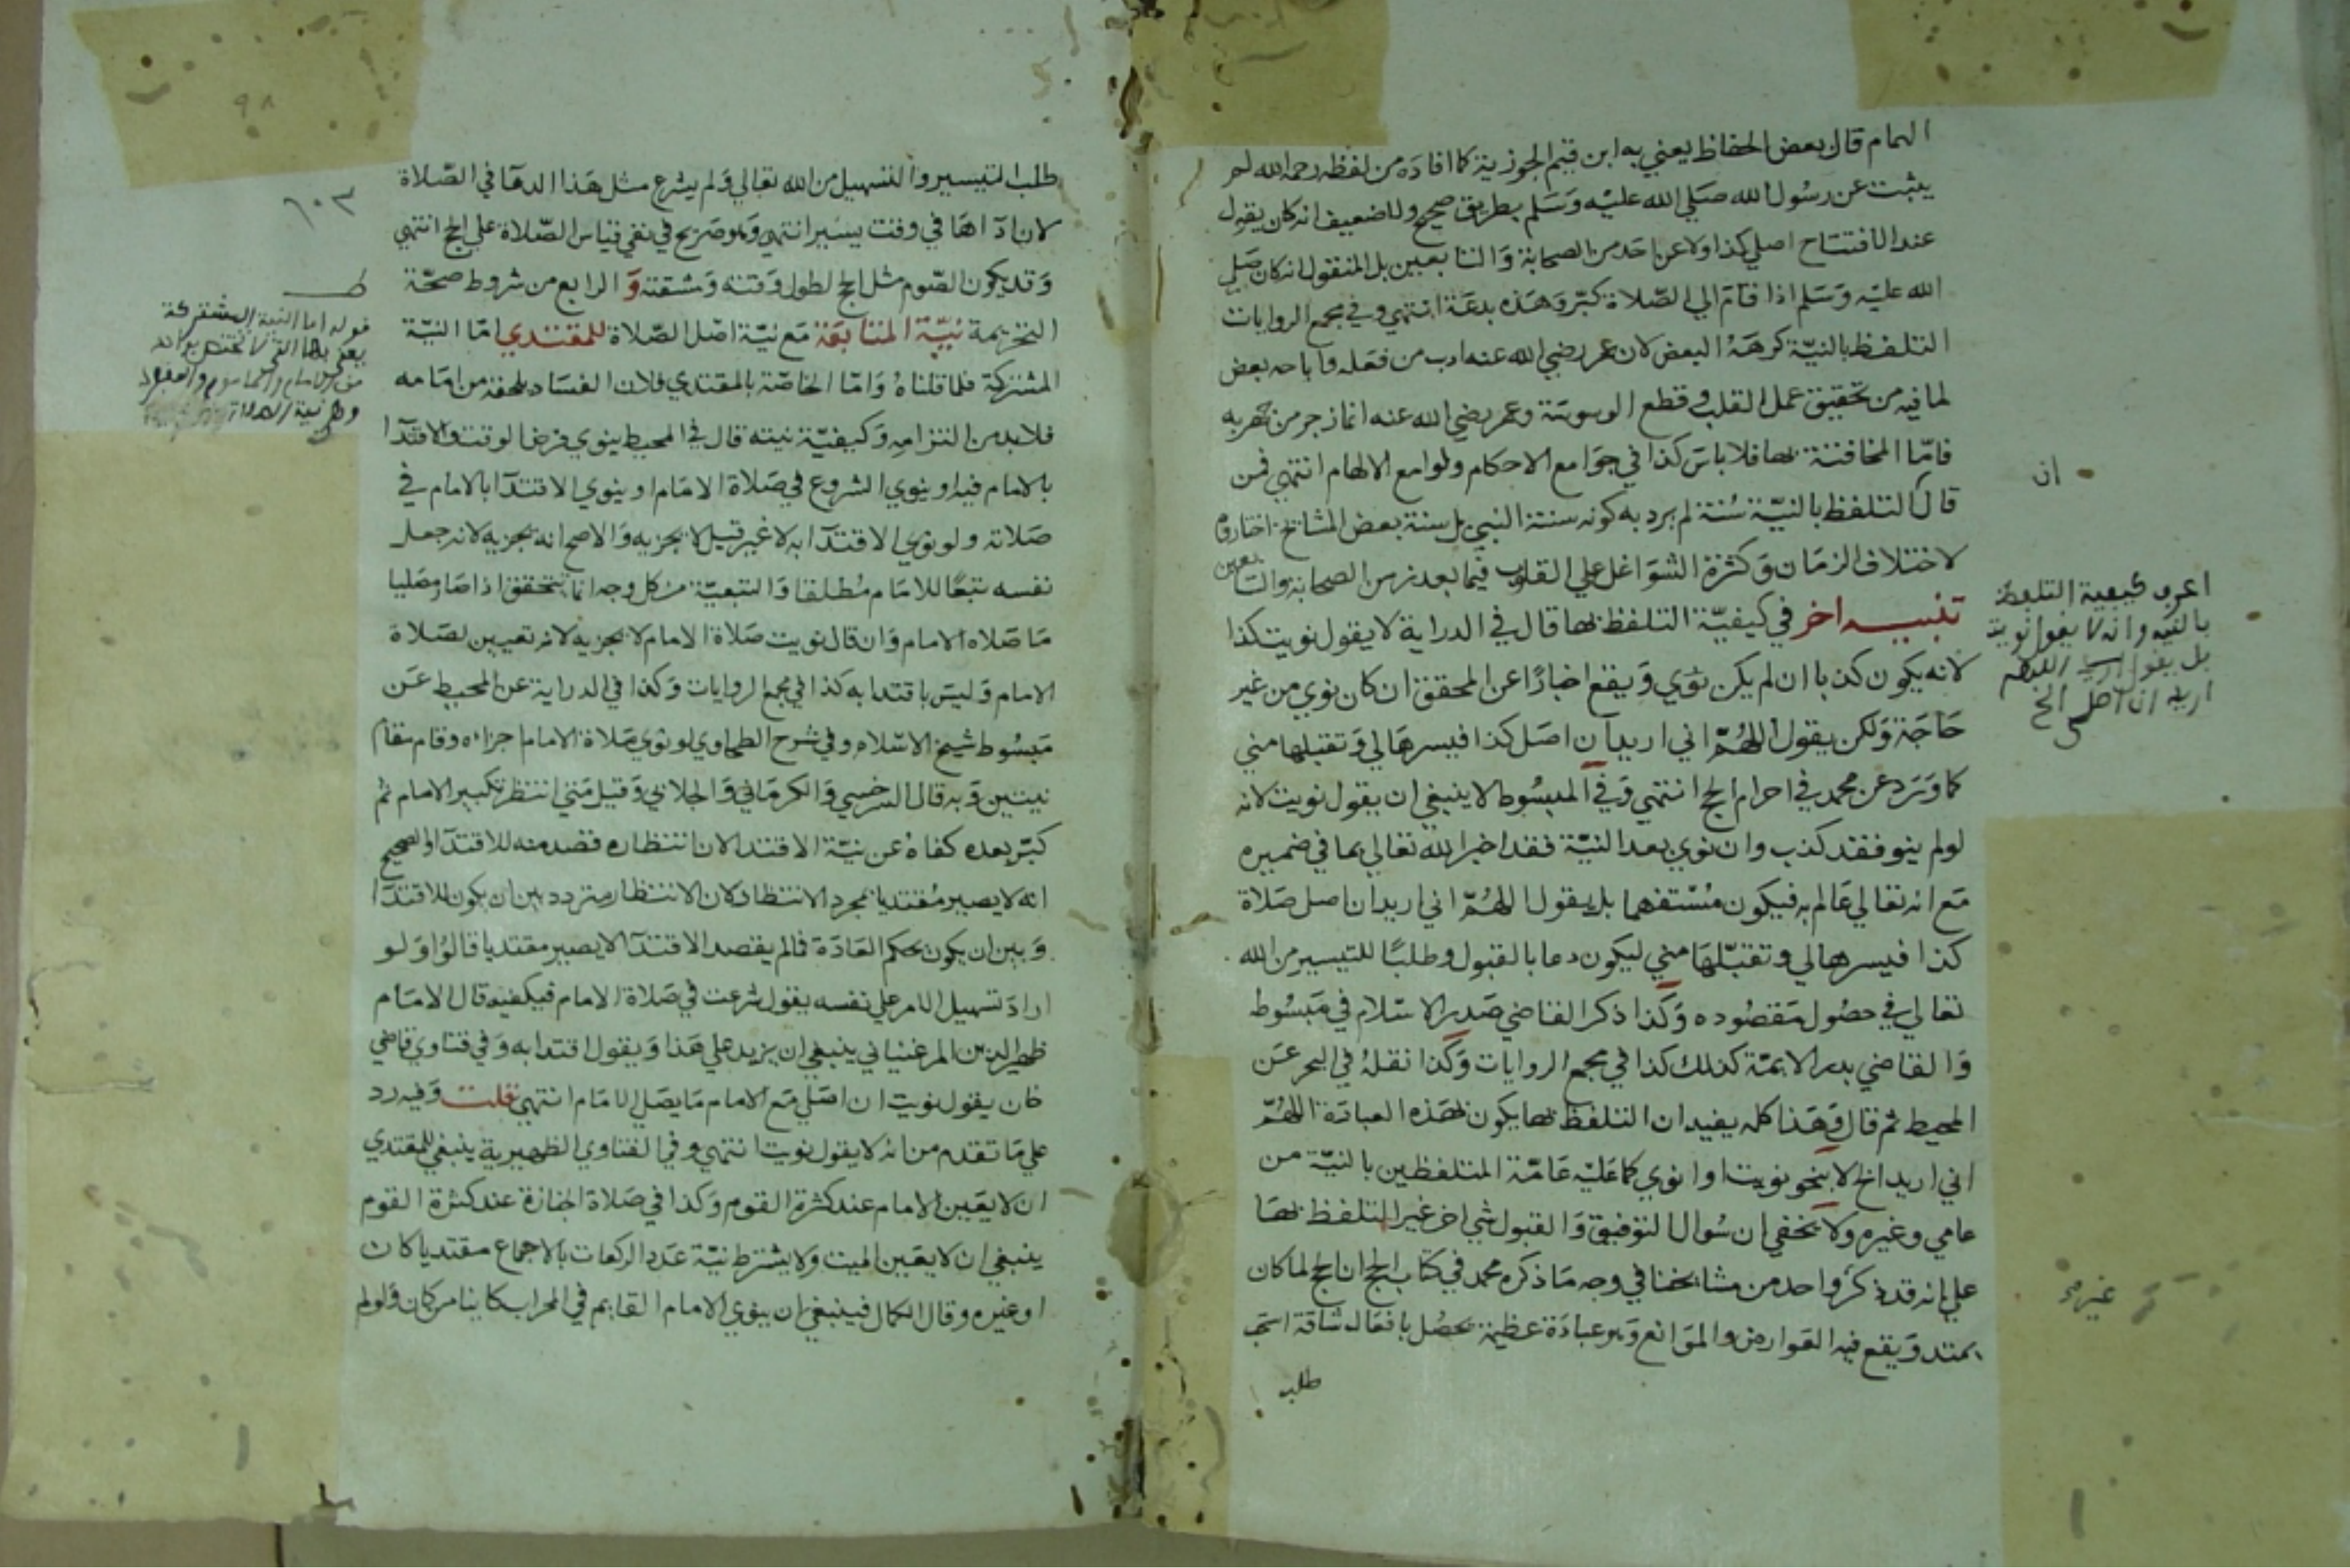 الهمام قال بعض الحفاظ يعني به ابن قيم الجوزية كما افاده من لفظه رحمه الله لم
يثبت عن رسول الله صلي الله عليه وسلم بطريق صحيح ولا ضعيف انه كان يقول
عند الافتتاح اصلي كذا ولا عن احد من الصحابة والتابعين بل المنقول انه كان صلي
الله عليه وسلم اذا قام الي الصلاة كبر وهذه بدعة انتهي وفي مجمع الروايات
التلفظ بالنية كرهه البعض لان عمر رضي الله عنه ادب من فعله واباحه بعض
لما فيه من تحقيق عمل القلب وقطع الوسوسة وعمر رضي الله عنه انما زجر من جهر به
فاما المخافتة بها فلا باس كذا في جوامع الاحكام ولوامع الالهام انتهي فمن
قال التلفظ بالنية سنة لم يرد به كونه سنة النبي بل سنة بعض المشايخ اختاروه
لاختلاف الزمان وكثرة الشواغل علي القلوب فيما بعد زمن الصحابة والتابعين
تنبيه اخر في كيفية التلفظ بها قال في الدراية لا يقول نويت كذا
لانه يكون كذبا ان لم يكن نوي ويقع اخبارا عن المحقق ان كان نوي من غير
حاجة ولكن يقول اللهم اني اريد ان اصل كذا فيسرها لي وتقبلها مني
كما ورد عن محمد في احرام الحج انتهي وفي المبسوط لا ينبغي ان يقول نويت لانه
لو لم ينو فقد كذب وان نوي بعد النية فقد اخبر الله تعالي بما في ضميره
مع انه تعالي عالم به فيكون مستفهما بل يقول اللهم اني اريد ان اصل صلاة
كذا فيسرها لي وتقبلها مني ليكون دعا بالقبول وطلبا للتيسير من الله
تعالي في حصول مقصوده وكذا ذكر القاضي صدر الاسلام في مبسوط
والقاضي بدر الايمة كذلك كذا في مجمع الروايات وكذا نقله في البحر عن
المحيط ثم قال وهذا كله يفيد ان التلفظ بها يكون بهذه العبادة اللهم
اني اريد الخ لا بنحو نويت او انوي كما عليه عامة المتلفظين بالنية من
عامي وغيره ولا يخفي ان سوال التوفيق والقبول شي اخر غير التلفظ بها
علي انه قد ذكر واحد من مشايخنا في وجه ما ذكره محمد في كتاب الحج ان الحج لما كان
يمتد ويقع فيه العوارض والموانع وهو عبادة عظيمة تحصل بافعال شاقة استحب
طلب
ان
اعرف كيفية التلفظ
بالنية وانه لا يقول نويت
بل يقول اللهم
اريد ان اصلي الخ
غيره
طلب التيسير والتسهيل من الله تعالي ولم يشرع مثل هذا الدعا في الصلاة
لان اداها في وقت يسير انتهي وهو صريح في نفي قياس الصلاة علي الحج انتهي
وقد يكون الصوم مثل الحج لطول وقته ومشقته و الرابع من شروط صحة
التحريمة نية المتابعة مع نية اصل الصلاة للمقتدي اما النية
المشتركة فلما قلناه واما الخاصة بالمقتدي فلان الفساد يلحقه من امامه
فلا بد من التزامه وكيفية نيته قال في المحيط ينوي فرض الوقت والاقتدا
بالامام فيه او ينوي الشروع في صلاة الامام او ينوي الاقتدا بالامام في
صلاته ولو نوي الاقتدا به لا غير قيل لا يجزيه والاصح انه يجزيه لانه جعل
نفسه تبعا للامام مطلقا والتبعية من كل وجه انما تتحقق اذا صار مصليا
ما صلاه الامام وان قال نويت صلاة الامام لا يجزيه لانه تعيين لصلاة
الامام وليس باقتدا به كذا في مجمع الروايات وكذا في الدراية عن المحيط عن
مبسوط شيخ الاسلام وفي شرح الطحاوي لو نوي صلاة الامام اجزاه وقام مقام
نيتين وبه قال السرخسي والكرماني والجلابي وقيل متي انتظر تكبير الامام ثم
كبر بعده كفاه عن نية الاقتدا لان انتظاره قصد منه للاقتدا والصحيح
انه لا يصير مقتديا بمجرد الانتظار لان الانتظار متردد بين ان يكون للاقتدا
وبين ان يكون بحكم العادة فما لم يقصد الاقتدا لا يصير مقتديا قالوا ولو
اراد تسهيل الامر علي نفسه يقول شرعت في صلاة الامام فيكفيه قال الامام
ظهير الدين المرغيناني ينبغي ان يزيد علي هذا ويقول اقتدا به وفي فتاوي قاضي
خان يقول نويت ان اصلي مع الامام ما يصلي الامام انتهي قلت وفيه رد
علي ما تقدم من انه لا يقول نويت انتهي وفي الفتاوي الظهيرية ينبغي للمقتدي
ان لا يعين الامام عند كثرة القوم وكذا في صلاة الجنازة عند كثرة القوم
ينبغي ان لا يعين الميت ولا يشترط نية عدد الركعات بالاجماع مقتديا كان
او غيره وقال الكمال فينبغي ان ينوي الامام القايم في المحراب كاينا من كان ولو لم
٩٨
١٠٣
قوله اما النية المشتركة